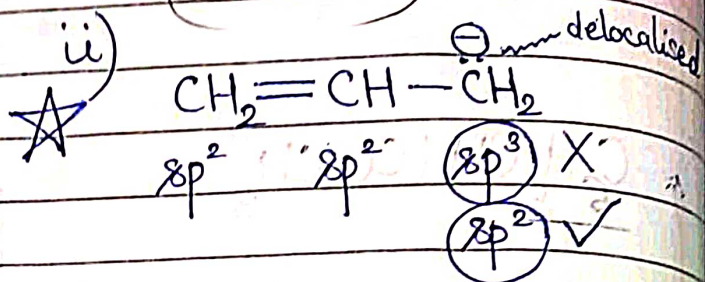 ii)
⊖ delocalised
CH₂=CH–C̈H₂
sp² sp² sp³ X
sp² ✓